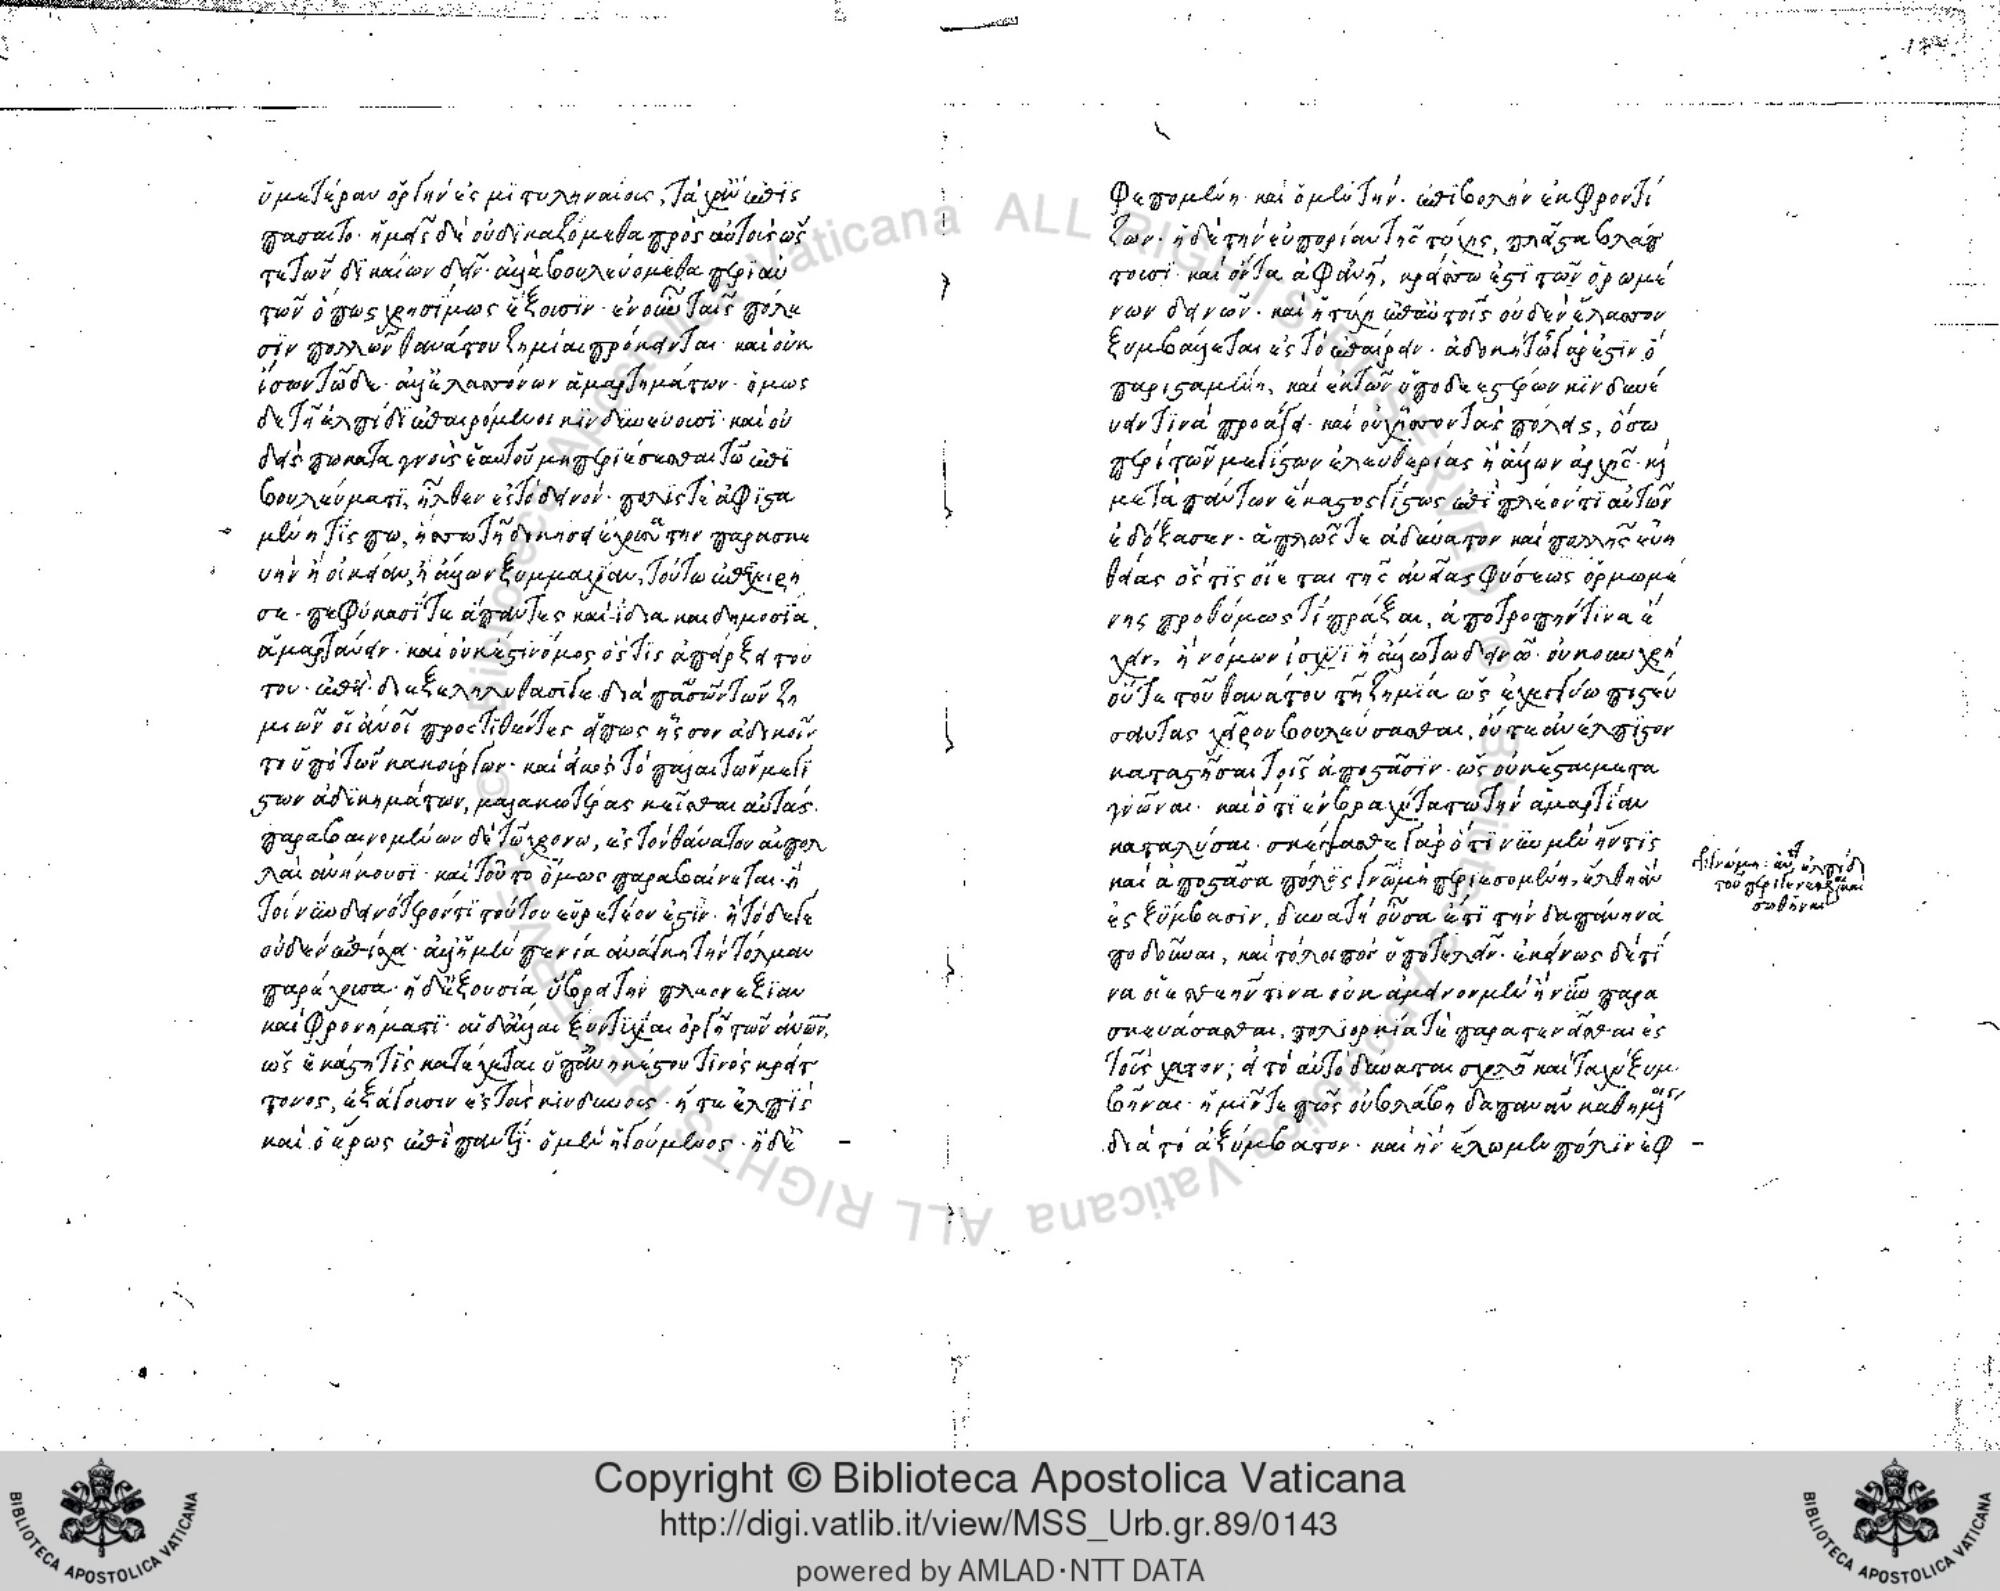 ὑμετέραν ὀργὴν ἐς μιτυληναίους, τάχ' ἂν ἐπισ
πάσαιτο· ἡμεῖς δὲ οὐ δικαζόμεθα πρὸς αὐτοὺς ὥσ
τε τῶν δικαίων δεῖν· ἀλλὰ βουλευόμεθα περὶ αὐ
τῶν ὅπως χρησίμως ἕξουσιν· ἐν οὖν ταῖς πόλε
σιν πολλῶν θανάτου ζημίαι πρόκεινται· καὶ οὐκ
ἴσων τῷδε· ἀλλ' ἐλασσόνων ἁμαρτημάτων· ὅμως
δὲ τῇ ἐλπίδι ἐπαιρόμενοι κινδυνεύουσι· καὶ οὐ
δείς πω καταγνοὺς ἑαυτοῦ μὴ περιέσεσθαι τῷ ἐπι
βουλεύματι, ἦλθεν ἐς τὸ δεινόν· πόλις τε ἀφιστα
μένη τίς πω, ἥσσω τῇ δοκήσει ἔχουσα τὴν παρασκε
υὴν ἢ οἰκείαν, ἢ ἄλλων ξυμμαχίαν, τούτῳ ἐπεχείρη
σε· πεφύκασί τε ἅπαντες καὶ ἰδίᾳ καὶ δημοσίᾳ
ἁμαρτάνειν· καὶ οὐκ ἔστι νόμος ὅστις ἀπείρξει τού
του· ἐπεὶ διεξεληλύθασί γε διὰ πασῶν τῶν ζη
μιῶν οἱ ἄνοι προστιθέντες εἴπως ἧσσον ἀδικοῖν
το ὑπὸ τῶν κακούργων· καὶ εἰκὸς τὸ πάλαι τῶν μεγί
στων ἀδικημάτων, μαλακωτέρας κεῖσθαι αὐτάς·
παραβαινομένων δὲ τῷ χρόνῳ, ἐς τὸν θάνατον αἱ πολ
λαὶ ἀνήκουσι· καὶ τοῦτο ὅμως παραβαίνεται· ἢ
τοίνυν δεινότερόν τι τούτου εὑρετέον ἐστίν· ἢ τόδε γε
οὐδὲν ἐπίσχει· ἀλλ' ἡ μὲν πενία ἀνάγκῃ τὴν τόλμαν
παρέχουσα· ἡ δ' ἐξουσία ὕβρει τὴν πλεονεξίαν
καὶ φρονήματι· αἱ δ' ἄλλαι ξυντυχίαι ὀργῇ τῶν ἀνῶν,
ὡς ἑκάστη τις κατέχεται ὑπ' ἀνηκέστου τινὸς κρείτ
τονος, ἐξάγουσιν ἐς τοὺς κινδύνους· ἥ τε ἐλπὶς
καὶ ὁ ἔρως ἐπὶ παντί· ὁ μὲν ἡγούμενος· ἡ δὲ
φεπομένη· καὶ ὁ μὲν τὴν ἐπιβολὴν ἐκφροντί
ζων· ἡ δὲ τὴν εὐπορίαν τῆς τύχης, πλεῖστα βλάπ
τουσι· καὶ ὄντα ἀφανῆ, κρείσσω ἐστὶ τῶν ὁρωμέ
νων δεινῶν· καὶ ἡ τύχη ἐπ' αὐτοῖς οὐδὲν ἔλασσον
ξυμβάλλεται ἐς τὸ ἐπαίρειν· ἀδοκήτως γὰρ ἔστιν ὅ
παρισταμένη, καὶ ἐκ τῶν ὑποδεεστέρων κινδυνε
ύειν τινὰ προάγει· καὶ οὐχ ἧσσον τὰς πόλεις, ὅσῳ
περὶ τῶν μεγίστων ἐλευθερίας ἢ ἄλλων ἀρχῆς· καὶ
μετὰ πάντων ἕκαστος ἀλογίστως ἐπὶ πλέον τι αὐτῶν
ἐδόξασεν· ἁπλῶς τε ἀδύνατον καὶ πολλῆς εὐη
θείας ὅστις οἴεται τῆς ἀνείας φύσεως ὁρμωμέ
νης προθύμως τι πρᾶξαι, ἀποτροπήν τινα ἔ
χειν, ἢ νόμων ἰσχύϊ ἢ ἄλλῳ τῳ δεινῷ· οὔκουν χρὴ
οὔτε τοῦ θανάτου τῇ ζημίᾳ ὡς ἐχεγγύῳ πιστεύ
σαντας χεῖρον βουλεύσασθαι, οὔτε ἀνέλπιστον
καταστῆσαι τοῖς ἀποστᾶσιν· ὡς οὐκ ἔσται μετα
γνῶναι· καὶ ὅτι ἐν βραχυτάτῳ τὴν ἁμαρτίαν
καταλῦσαι· σκέψασθε γὰρ ὅτι νῦν μὲν ἤν τις
καὶ ἀποστᾶσα πόλις γνῶ μὴ περιεσομένη, ἔλθῃ ἂν
ἐς ξύμβασιν, δυνατὴ οὖσα ἔτι τὴν δαπάνην ἀ
ποδοῦναι, καὶ τὸ λοιπὸν ὑποτελεῖν· ἐκείνως δὲ τί
να οἴεσθε ἥντινα οὐκ ἄμεινον μὲν ἢ νῦν παρα
σκευάσασθαι, πολιορκίᾳ τε παρατενεῖσθαι ἐς
τοὔσχατον; εἰ τὸ αὐτὸ δύναται σχολῇ καὶ ταχὺ ξυμ
βῆναι· ἡμῖν τε πῶς οὐ βλάβη δαπανᾶν καθημένοις
διὰ τὸ ἀξύμβατον· καὶ ἢν ἕλωμεν πόλιν ἐφ